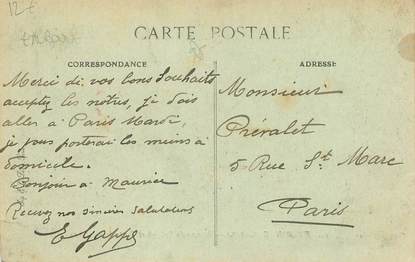 CARTE POSTALE
CORRESPONDANCE
Merci de vos bons Souhaits
acceptez les notres, je dois
aller à Paris Mardi,
je vous porterai les miens à
domicile.
Bonjour à Maurice
Recevez nos sincères Salutations
E Gappe
ADRESSE
Monsieur
Prévalet
5 Rue St. Marc
Paris